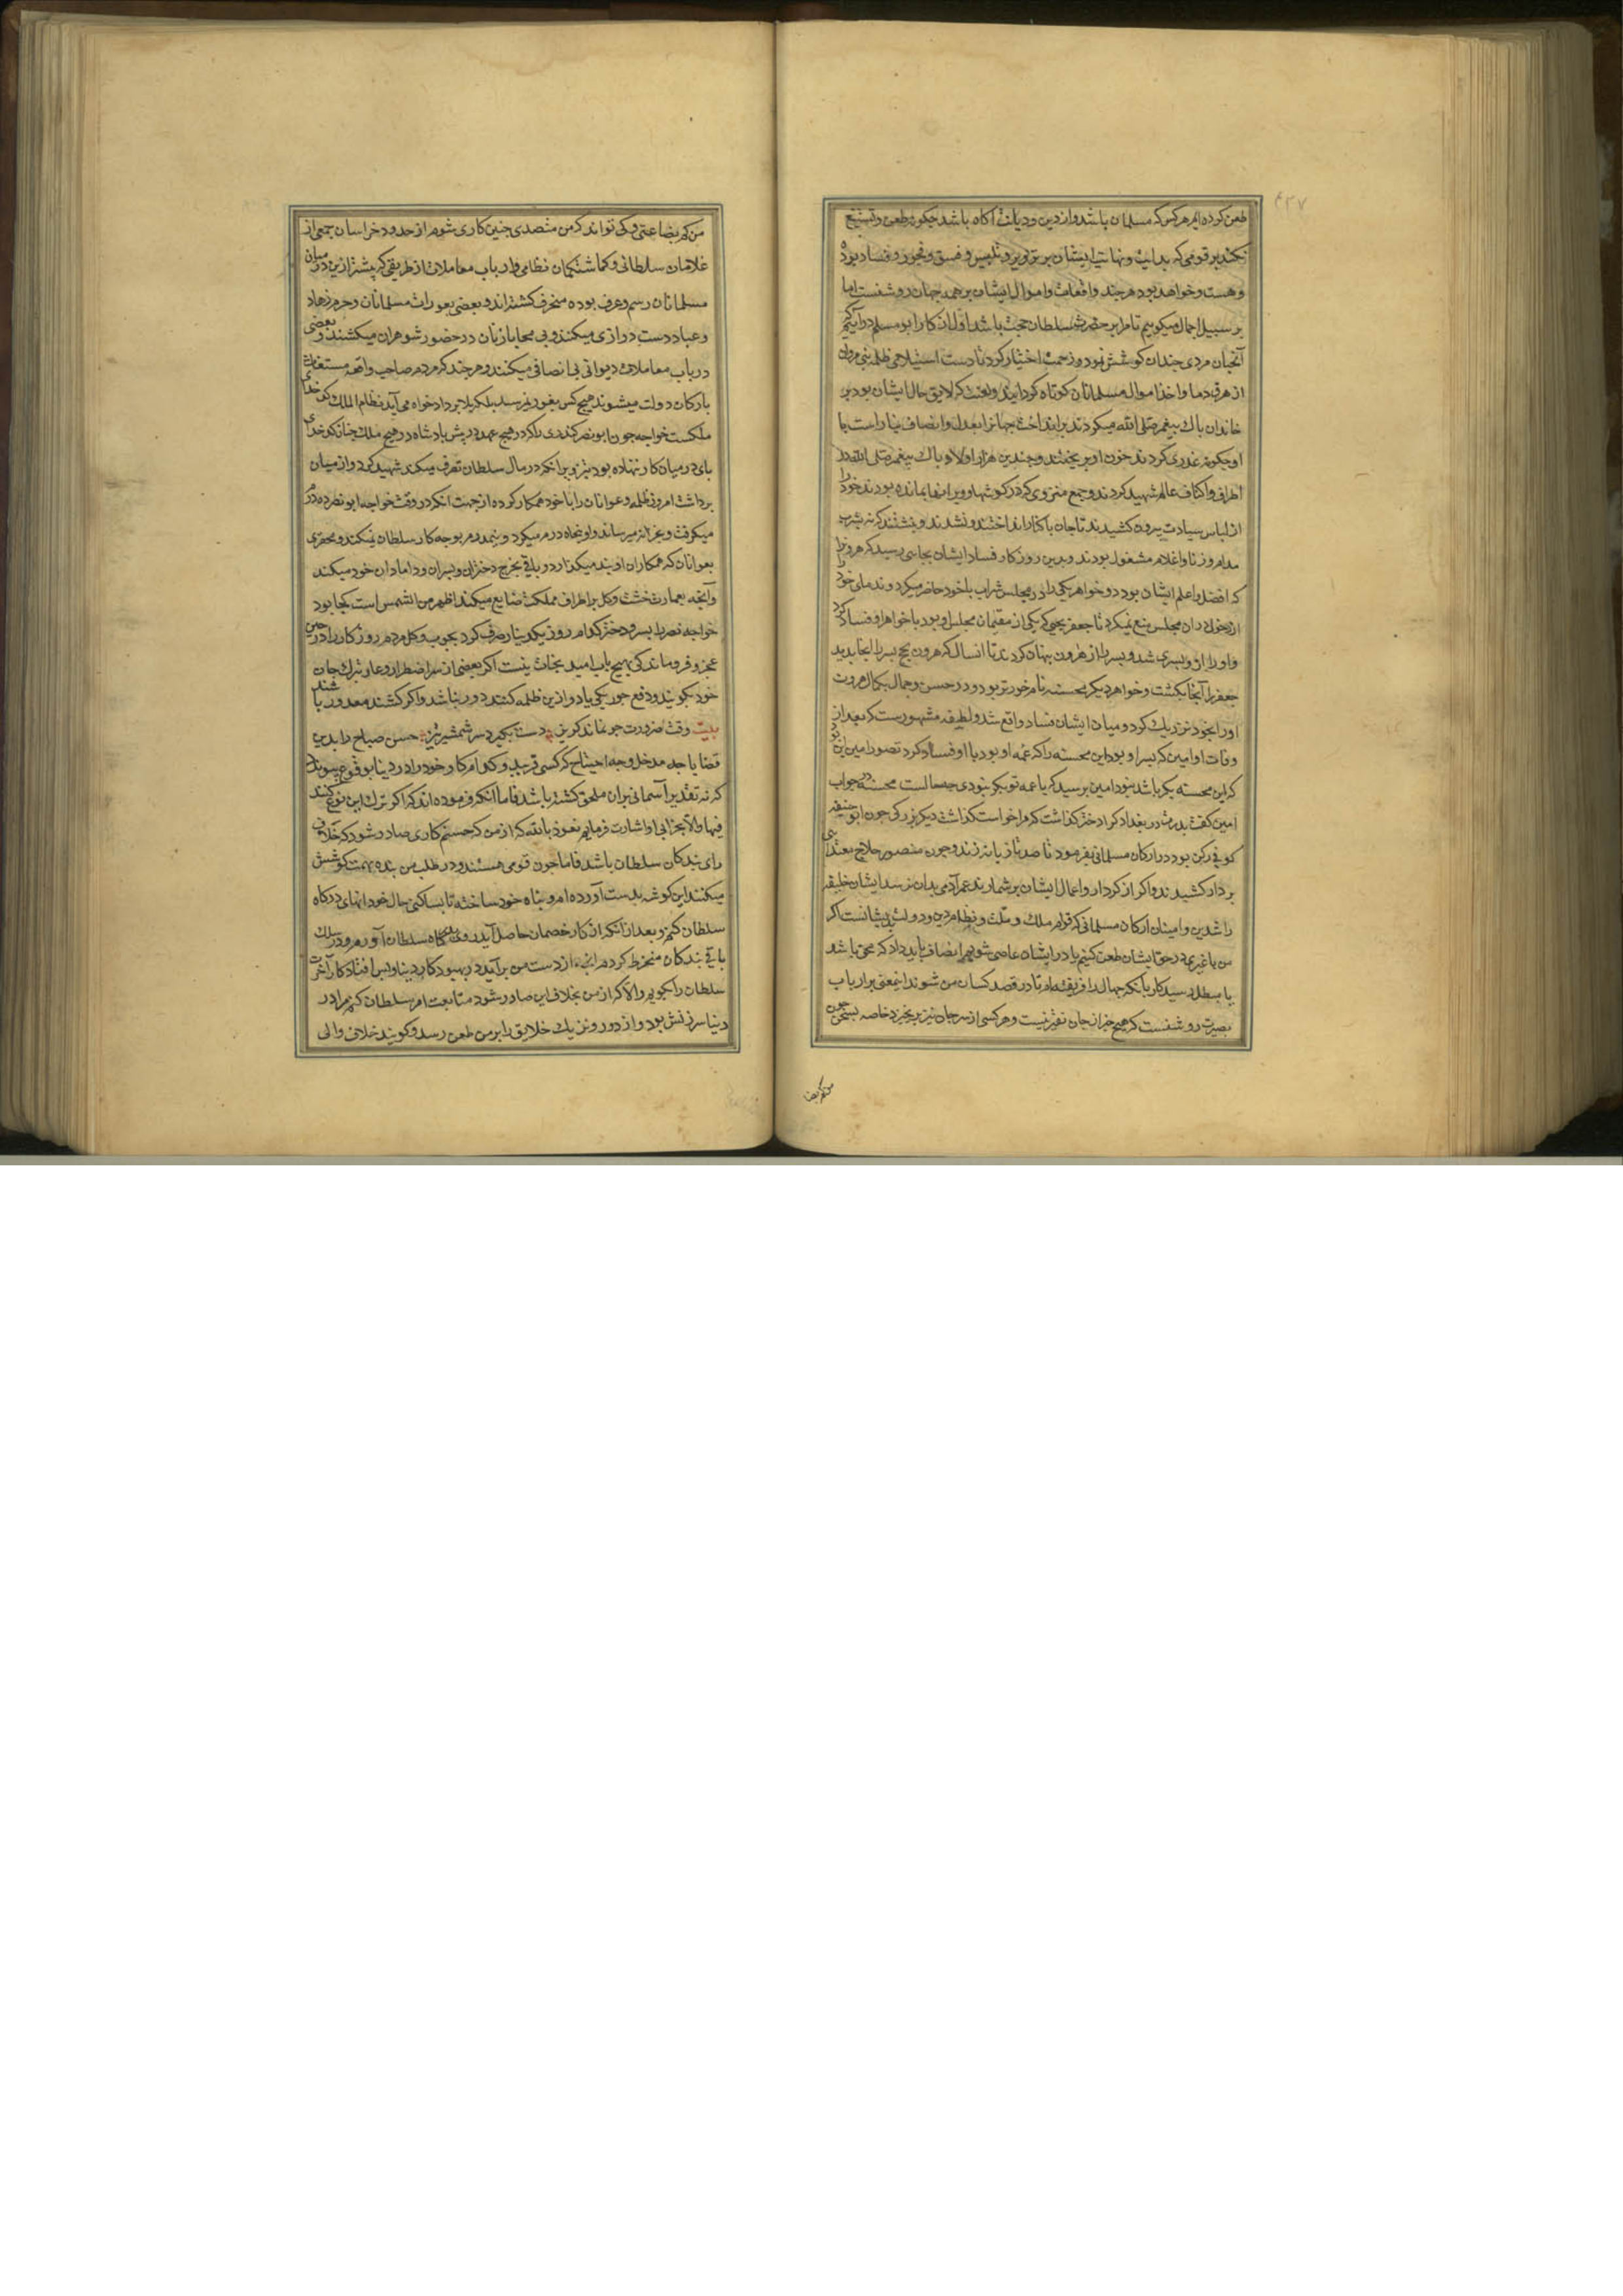 ۴۲۷
طعن کرده‌ایم هر کس که مسلمان باشد و از دین و دیانت آکاه باشد چکونه طعن و تشنیع
نکند بر قومی که بدایت و نهایت ایشان بر تزویر و تلبیس و فسق و فجور و فساد بوده
و هست و خواهد بود هر چند واقعات و اموال ایشان بر همه جهان روشنست اما
بر سبیل اجمال میکویم تا مرا بر حضرت سلطان حجت باشد اول از کار ابو مسلم درآییم که
آنچنان مردی چندان کوشش نمود و زحمت اختیار کرد تا دست استیلاء ظلمه بنی مروان
از هرق دما و اخذ اموال مسلمانان کوتاه کردانید و لعنت که لایق حال ایشان بود بر
خاندان باک بیغمبر صلی الله میکردند برانداخت جهانرا بعدل و انصاف بیاراست با
او چکونه غدری کردند خون او بریختند و چندین هزار اولاد باک بیغمبر صلی الله در
اطراف و اکناف عالم شهید کردند و جمع منزوی که در کوشها و ویرانها بمانده بودند خود را
از لباس سیادت بیرون کشیدند تا جان با کنار انداختند و نشدند و بنشستند که بشرب
مدام و زنا و اغلام مشغول بودند و بدین روزکار فساد ایشان بجایی رسید که هرون را
که افضل و اعلم ایشان بود دو خواهر یکی را در مجلس شراب با خود حاضر میکرد و ندمای خود را
از دخول دران مجلس منع نمیکرد تا جعفر یحیی که یکی از مقیمان مجلس او بود با خواهر او فساد کرد
و او را ازو بسری شد و بسر را از هرون بنهان کردند تا انسال که هرون بحج بسر را انجا بدید
جعفر را آنجا بکشت و خواهر دیکر محسنه نام خردتر بود و در حسن و جمال بکمال هرون
او را بخود نزدیک کرد و میان ایشان فساد واقع شد و لطیفه مشهورست که بعد از
وفات او امین که بسر او بود این محسنه را که عمه او بود با او فساد کرد تصور امین این بود
که این محسنه بکر باشد نبود امین برسید که یا عمه تو بکر نبودی چه حالست محسنه در جواب
امین کفت بدرت در بغداد کرا دختر کذاشت که مرا خواست کذاشت دیکر بزرکی چون ابو حنیفه
کوفی رکن بود در ارکان مسلمانی بفرمود تا صد تازیانه زدند و چون منصور حلاج مقتدایی
بر دار کشیدند و اکر از کردار و اعمال ایشان بر شمارند عمر آدمی بدان نرسد ایشان خلیفه
راشدین و امینان ارکان مسلمانی که قوام ملک و ملت و نظام دین و دولت بدیشانست اکر
من یا غیری در حق ایشان طعن کنیم یا در ایشان عاصی شویم انصاف باید داد که محق باشد
یا مبطل رسید کار بآنکه جهال را فریفته‌ام تا در قصد کسان من شوند اینمعنی بر ارباب
بصیرت روشنست که هیچ چیز از جان نفیرنیست و هر کسی از سر جان نیز برنخیزد خاصه بسخن چون
من کم بضا
من کم بضاعتی و کی تواند که من متصدی چنین کاری شوم از حدود خراسان جمعی از
غلامان سلطانی و کماشتکان نظامی و ارباب معاملات از طریقی که بیشتر ازین در میان
مسلمانان رسم و عرف بوده منحرف کشته‌اند و بعضی بعورات مسلمانان و حرم زهاد
و عباد دست درازی میکنند و بی محابا زنان در حضور شوهران میکشند و بعضی
در باب معاملات دیوانی بی انصافی میکنند و هر چند که مردم صاحب واقعه مستغاث
بارکان دولت میشوند هیچ کس بغور نمیرسد بلکه بلا بر دادخواه می‌آید نظام الملک کدخدای
ملکست خواجه چون ابو نصر کندری را که در هیچ عهد در بیش بادشاه در هیچ ملک چنان کدخدای
بای در میان کار ننهاده بود بتزویر انکه در مال سلطان تصرف میکند شهید کرد و از میان
برداشت امروز ظلمه و عوانان را با خود همکار کرده از جهت انکه در وقت خواجه ابو نصر ده درم
میکرفت و بخزانه میرساند و او پنجاه درم میکیرد و نیم درم بوجه کار سلطان نمیکند و محقری
بعوانان که همکاران اویند میکذارد و باقی بخرج دختران و بسران و دامادان خود میکند
و آنچه بعمارت خشت و کل بر اطراف مملکت ضایع میکند اظهر من الشمس است کجا بود
خواجه نصر را بسر و دختر کدام روز یکدینار صرف کرد بچوب و کل مردم روزکار را در چنین
عجز و فروماندکی بهیچ باب امید نجات نیست اکر بعضی از سر اضطرار و عار بترک جان
خود بکویند و دفع جور یکی یا دو ازین ظلمه کنند دور نباشد و اکر کشند معذور باشند
بیت وقت ضرورت چو نماند کریز دست بکیرد سر شمشیر تیز حسن صباح را بدین
قضایا چه مدخل و چه احتیاج که کسی فریبد و کدام کار خود را در دنیا بوقوع بیوندد
که نه تقدیر آسمانی بران ملحق کشته باشد فاما آنکه فرموده‌اند که اکر ترک این نوع کنند
فبها و الا بخرابی او اشارت فرماییم نعوذ بالله که از من که حسنم کاری صادر شود که خلاف
رای بندکان سلطان باشد فاما چون قومی هستند و در طلب من بنده بهمت کوشش
میکنند این کوشه بدست آورده‌ام و بناه خود ساخته تا بساکنی حال خود انهای درکاه
سلطان کنم و بعد از آنکه از کار خصمان حاصل آید روی بدرکاه سلطان آورم و در سلک
باقی بندکان منخرط کردم آنچه از دست من برآید در بهبود کار دنیا و بس افتاد کار آخرت
سلطان را بکویم و الا که از من بخلاف این صادر شود متابعت امر سلطان کنم مرا در
دنیا سرزنش بود و از دور و نزدیک خلایق را بر من طعن رسد و کویند خلاف والی